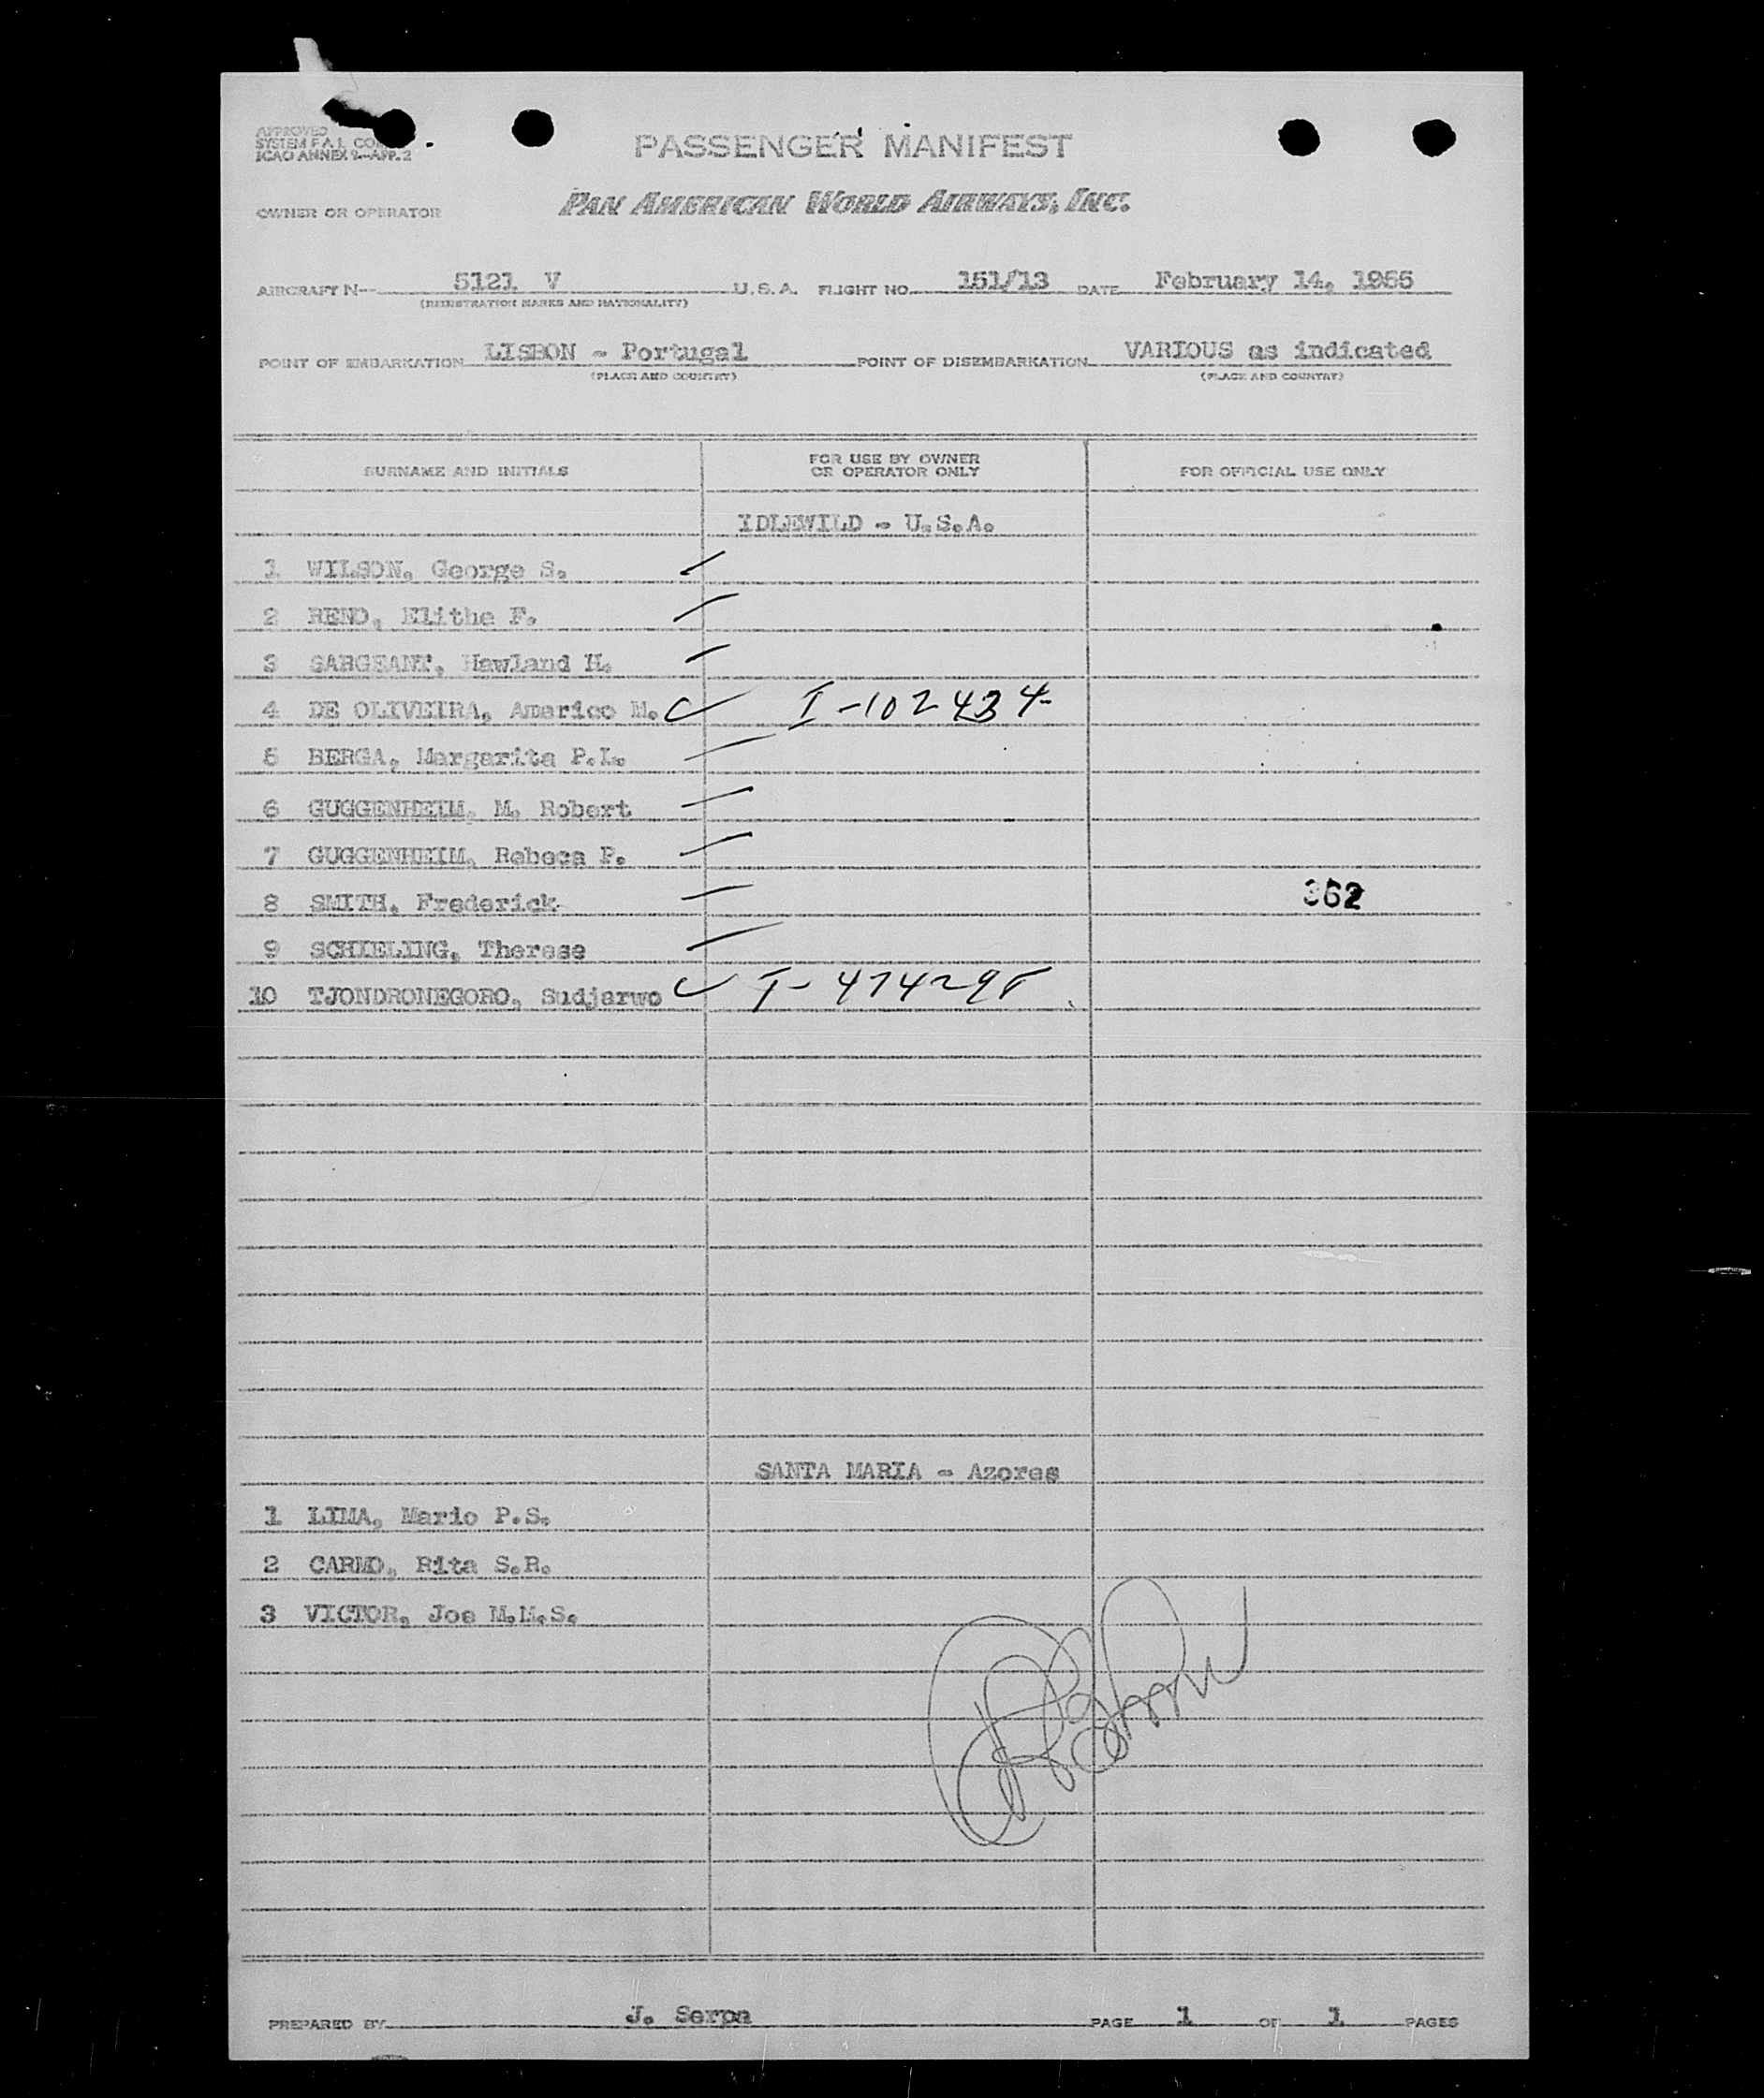 APPROVED
SYSTEM F.A.L. CO
ICAO ANNEX 9—APP. 2
PASSENGER MANIFEST
OWNER OR OPERATOR PAN AMERICAN WORLD AIRWAYS, INC.
AIRCRAFT N-- 5121 V U.S.A. FLIGHT NO. 151/13 DATE February 14, 1955
(REGISTRATION MARKS AND NATIONALITY)
POINT OF EMBARKATION LISBON - Portugal POINT OF DISEMBARKATION VARIOUS as indicated
(PLACE AND COUNTRY) (PLACE AND COUNTRY)
SURNAME AND INITIALS FOR USE BY OWNER OR OPERATOR ONLY FOR OFFICIAL USE ONLY
IDLEWILD - U.S.A.
1 WILSON, George S.
2 REND, Elithe F.
3 SARGEANT, Howland H.
4 DE OLIVEIRA, Americo M. I-102434
5 BERGA, Margarita P.L.
6 GUGGENHEIM, M. Robert
7 GUGGENHEIM, Rebeca P.
8 SMITH, Frederick 362
9 SCHIELING, Therese
10 TJONDRONEGORO, Sudjarwo I-474298
SANTA MARIA - Azores
1 LIMA, Mario P.S.
2 CARMO, Rita S.R.
3 VICTOR, Joe M.M.S.
PREPARED BY J. Serpa PAGE 1 OF 1 PAGES